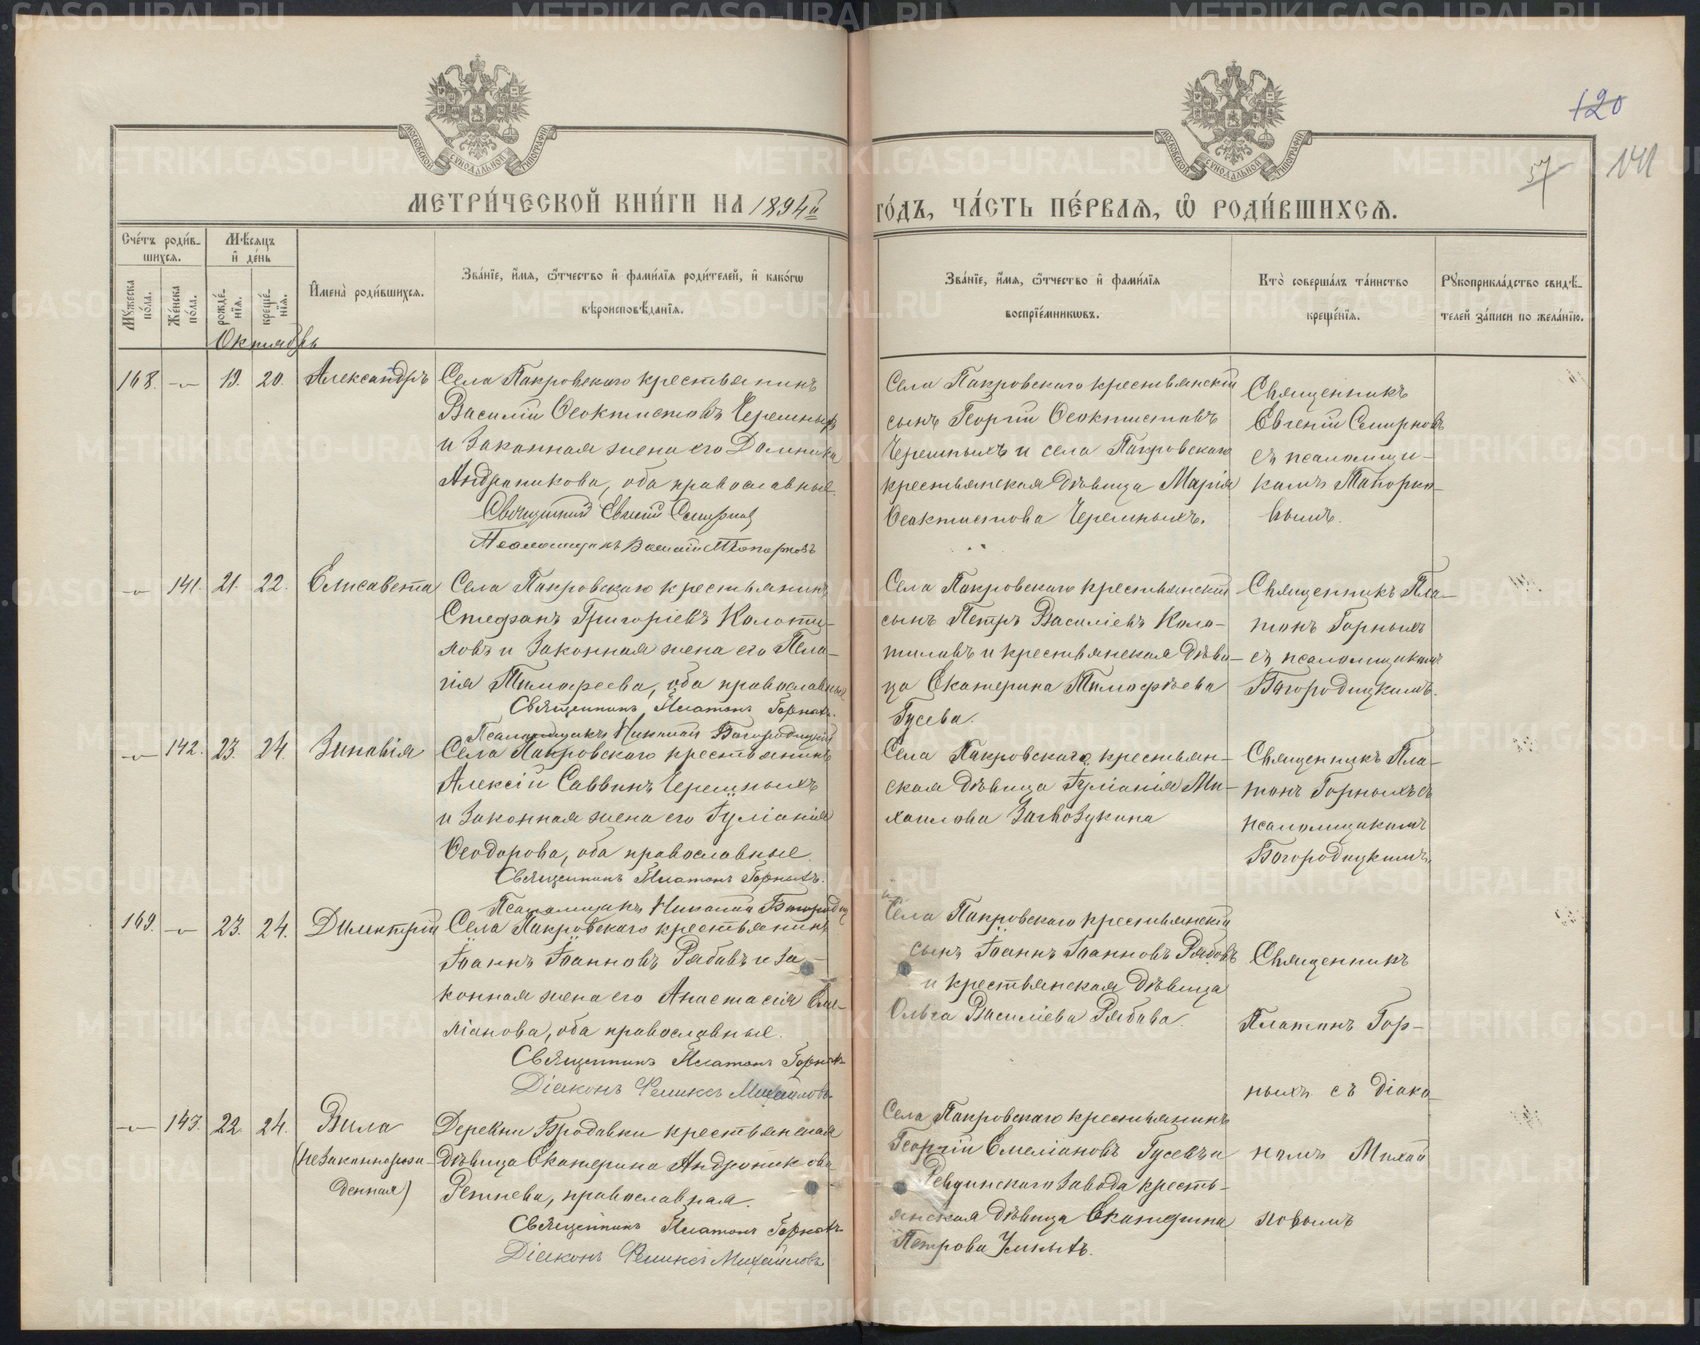 METRIKI.GASO-URAL.RU
120
57
141
МОСКОВСКОЙ СѴНОДАЛЬНОЙ ТИПОГРАФІИ
МЕТРИ́ЧЕСКОЙ КНИ́ГИ НА 1894й ГО́ДЪ, ЧА́СТЬ ПЕ́РВАЯ, Ѡ РОДИ́ВШИХСЯ.
Сче́тъ роди́вшихся.
Мѣ́сяцъ и҆ де́нь
Мꙋ́жеска по́ла.
Же́нска по́ла.
рожде́нїя.
креще́нїя.
И҆мена̀ роди́вшихся.
Зва́нїе, и҆́мя, ѻ҆́тчество и҆ фами́лїя роди́телей, и҆ како́гѡ вѣроисповѣ́данїя.
Зва́нїе, и҆́мя, ѻ҆́тчество и҆ фами́лїя воспрїе́мникѡвъ.
Кто̀ соверша́лъ та́инство креще́нїя.
Рꙋкоприкла́дство свидѣ́телей за́писи по жела́нїю.
Октябрь
168. — 19. 20. Александръ
Села Покровскаго крестьянинъ
Василій Ѳеоктистовъ Черемныхъ
и законная жена его Домника
Андроникова, оба православные.
Священникъ Евгеній Смирновъ
Псаломщикъ Василій Топорковъ
Села Покровскаго крестьянскій
сынъ Георгій Ѳеоктистовъ
Черемныхъ и села Покровскаго
крестьянская дѣвица Марія
Ѳеоктистова Черемныхъ.
Священникъ
Евгеній Смирновъ
съ псаломщи-
комъ Топорко-
вымъ.
— 141. 21. 22. Елисавета
Села Покровскаго крестьянинъ
Стефанъ Григоріевъ Колоти-
ловъ и законная жена его Пела-
гія Тимофеева, оба православные
Священникъ Платонъ Горныхъ.
Псаломщикъ Николай Богородицкій
Села Покровскаго крестьянскій
сынъ Петръ Василіевъ Коло-
тиловъ и крестьянская дѣви-
ца Екатерина Тимофѣева
Гусева.
Священникъ Пла-
тонъ Горныхъ
съ псаломщикомъ
Богородицкимъ.
— 142. 23. 24. Зиновія
Села Покровскаго крестьянинъ
Алексій Саввинъ Черемныхъ
и законная жена его Іуліанія
Ѳеодорова, оба православные.
Священникъ Платонъ Горныхъ.
Псаломщикъ Николай Богородиц
Села Покровскаго крестьян-
ская дѣвица Іуліанія Ми-
хаилова Загвозкина
Священникъ Пла-
тонъ Горныхъ съ
псаломщикомъ
Богородицкимъ.
169. — 23. 24. Димитрій
Села Покровскаго крестьянинъ
Іоаннъ Іоанновъ Рябовъ и за-
конная жена его Анастасія Еме-
ліанова, оба православные.
Священникъ Платонъ Горныхъ
Діаконъ Феликсъ Михайловъ
Села Покровскаго крестьянскій
сынъ Іоаннъ Іоанновъ Рябовъ
и крестьянская дѣвица
Ольга Василіева Рябова.
Священникъ
Платонъ Гор-
ныхъ съ діако-
номъ Михай
ловымъ
— 143. 22. 24. Вила
(незаконнорож-
денная)
Деревни Бродовки крестьянская
дѣвица Екатерина Андроникова
Ретнева, православная.
Священникъ Платонъ Горныхъ
Діаконъ Феликсъ Михайловъ
Села Покровскаго крестьянинъ
Георгій Емеліановъ Гусевъ и
Ревдинскаго завода кресть-
янская дѣвица Екатерина
Петрова